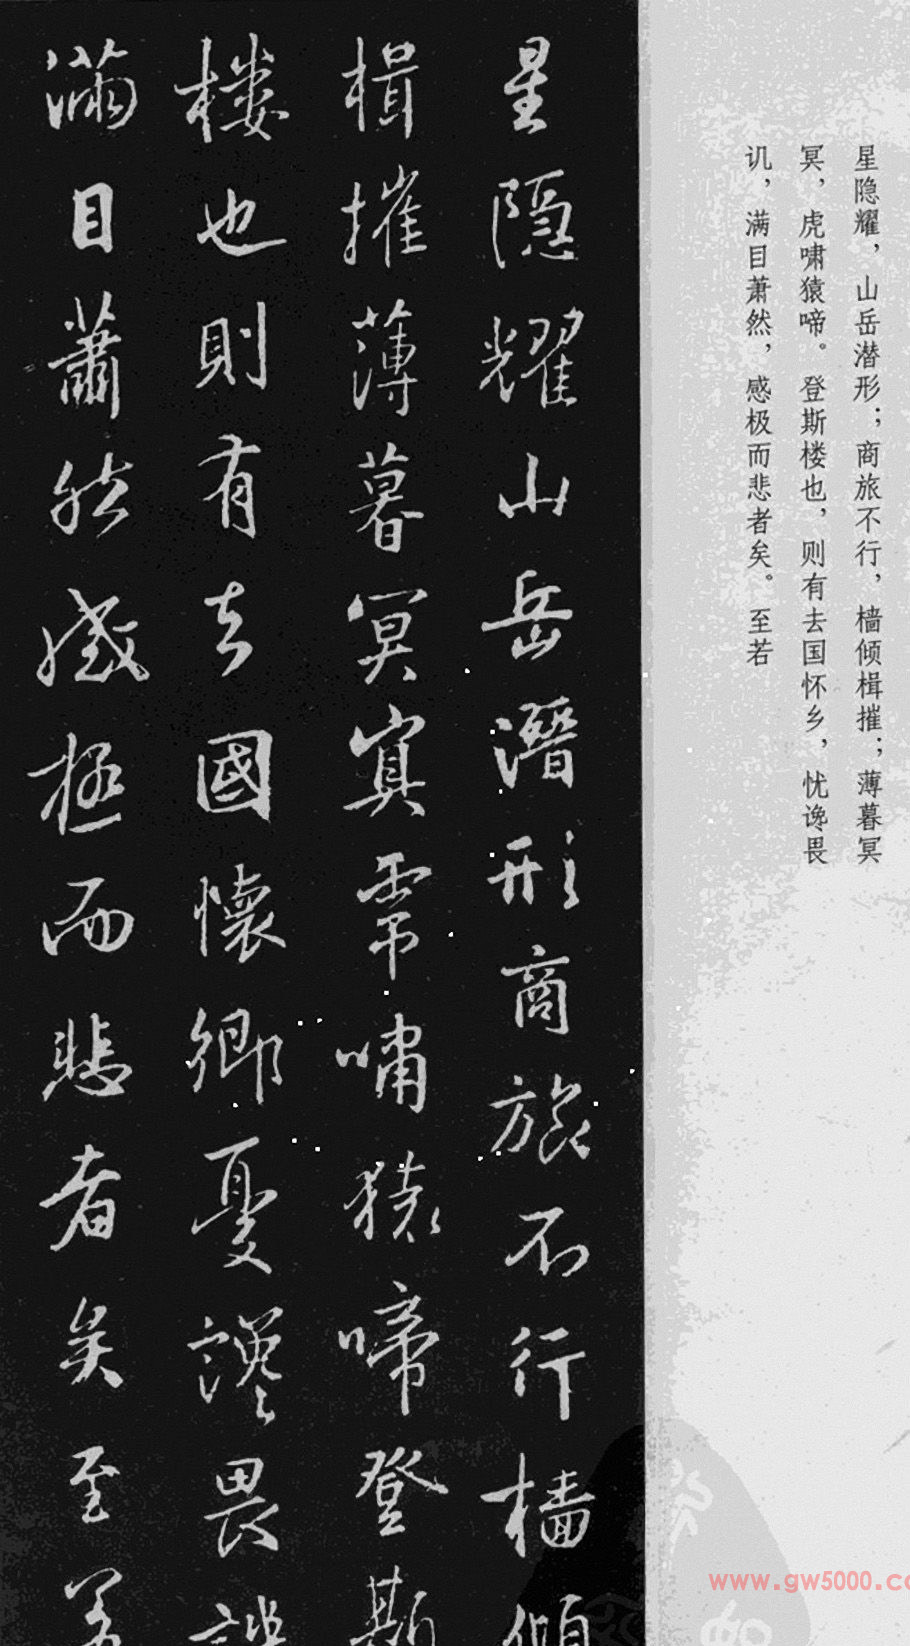 星隐耀，山岳潜形；商旅不行，樯倾楫摧；薄暮冥
冥，虎啸猿啼。登斯楼也，则有去国怀乡，忧谗畏
讥，满目萧然，感极而悲者矣。至若
星隱耀山岳潛形商旅不行檣傾
楫摧薄暮冥冥虎嘯猿啼登斯
樓也則有去國懷鄉憂讒畏譏
滿目蕭然感極而悲者矣至若
www.gw5000.co